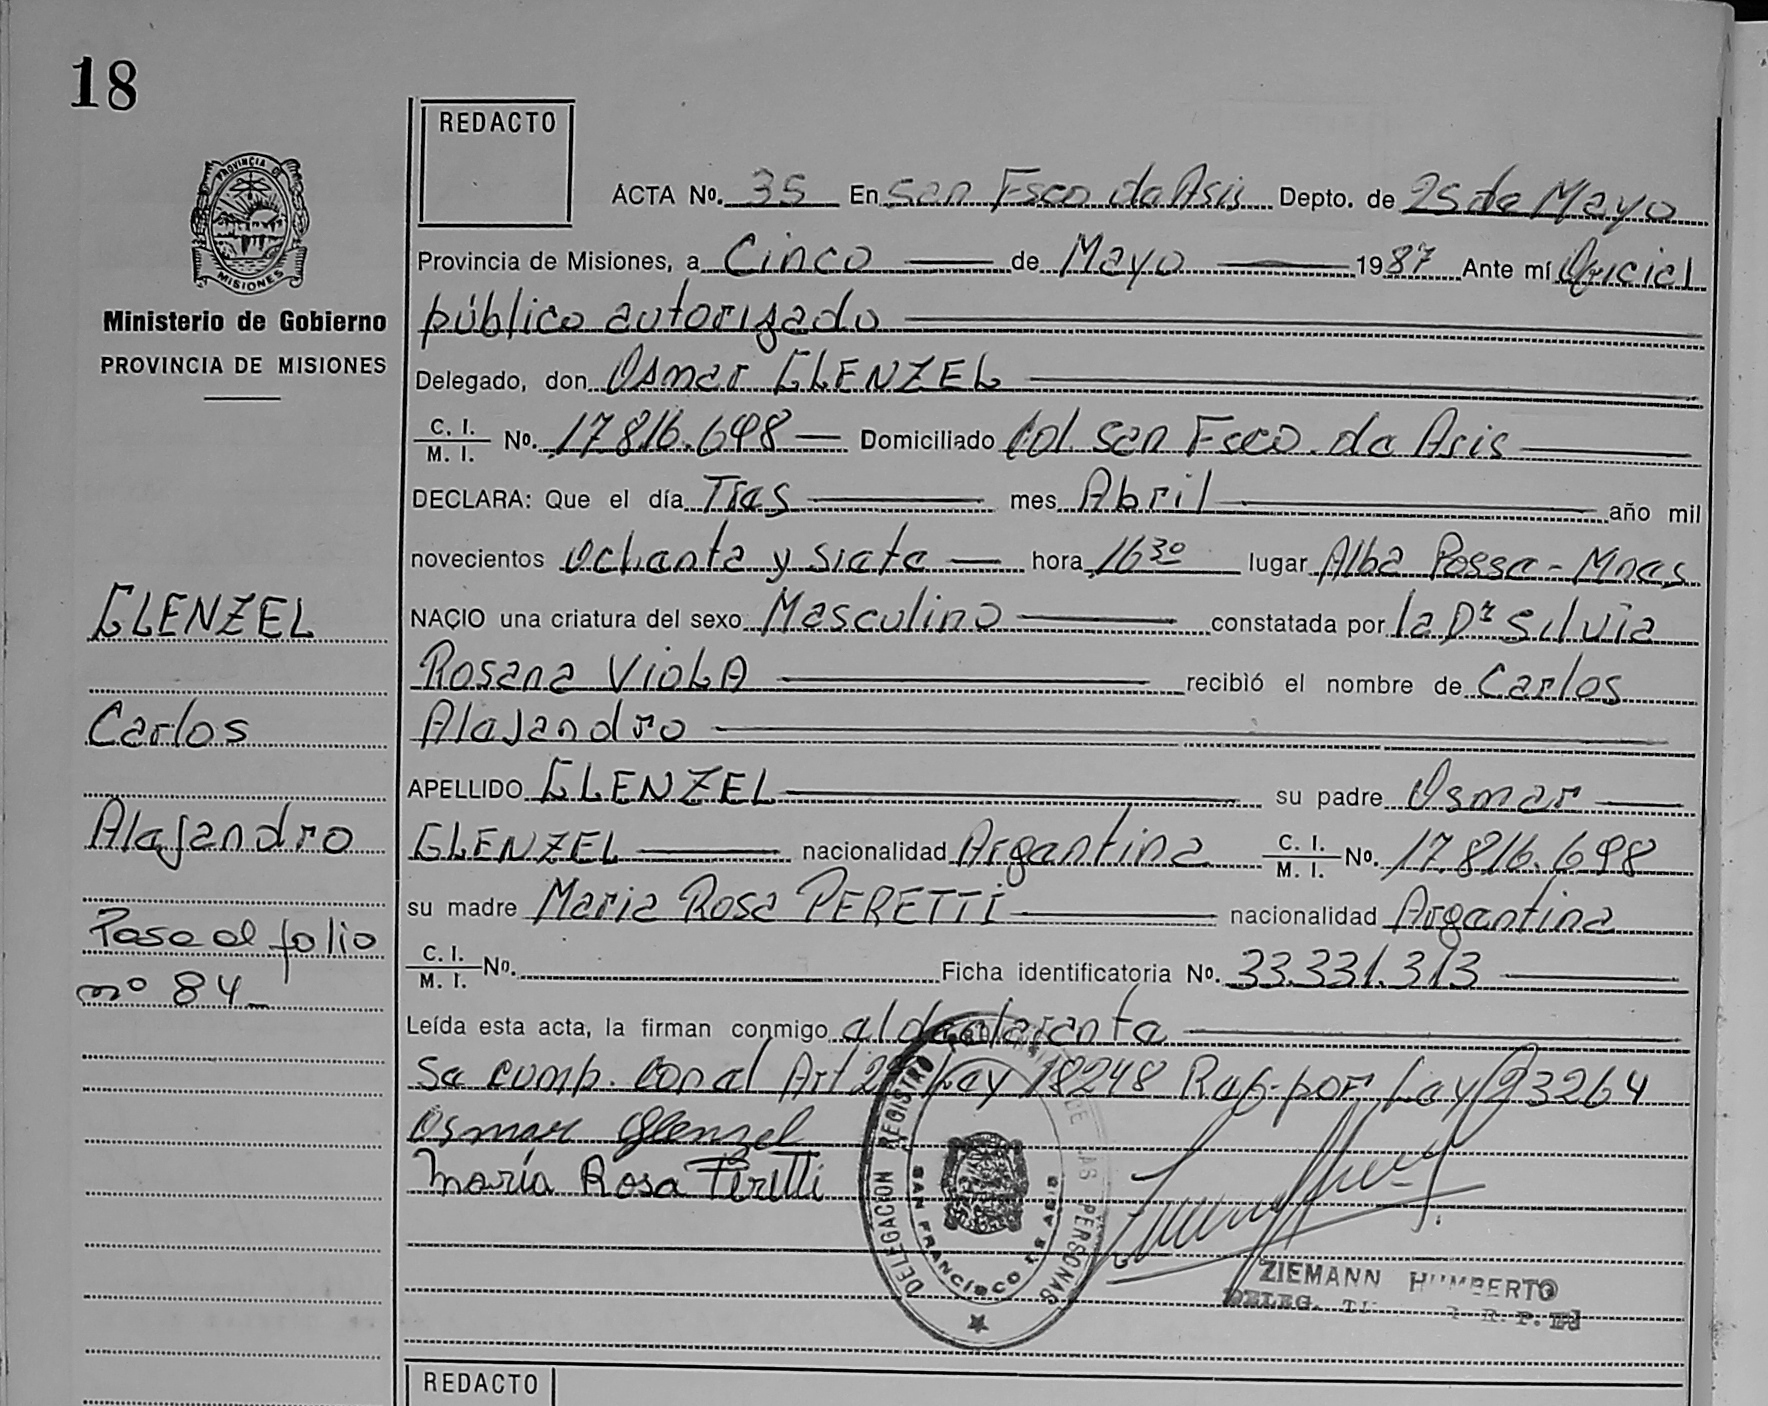 18
REDACTO
ACTA No. 35 En San Fsco de Asis Depto. de 25 de Mayo
Provincia de Misiones, a Cinco de Mayo 1987 Ante mí Oficial
público autorizado
Delegado, don Osmar GLENZEL
C. I. / M. I. No. 17.816.698 Domiciliado Col. San Fsco. de Asis
DECLARA: Que el día Tres mes Abril año mil
novecientos Ochenta y siete hora 16 30 lugar Alba Posse - Mnes
NACIO una criatura del sexo Masculino constatada por la Dra Silvia
Rosana ViolA recibió el nombre de Carlos
Alejandro
APELLIDO GLENZEL su padre Osmar
GLENZEL nacionalidad Argentina C. I. / M. I. No. 17.816.698
su madre Maria Rosa PERETTI nacionalidad Argentina
C. I. / M. I. No. Ficha identificatoria No. 33.331.313
Leída esta acta, la firman conmigo el declarante
Se cump. con el Art 2º Ley 18248 Ref. por Ley 23264
Osmar Glenzel
María Rosa Peretti
PROVINCIA DE
MISIONES
Ministerio de Gobierno
PROVINCIA DE MISIONES
GLENZEL
Carlos
Alejandro
Pase al folio
nº 84
DELEGACION REGISTRO DE LAS PERSONAS
SAN FRANCISCO DE ASIS
ZIEMANN HUMBERTO
DELEG. R. P.
REDACTO